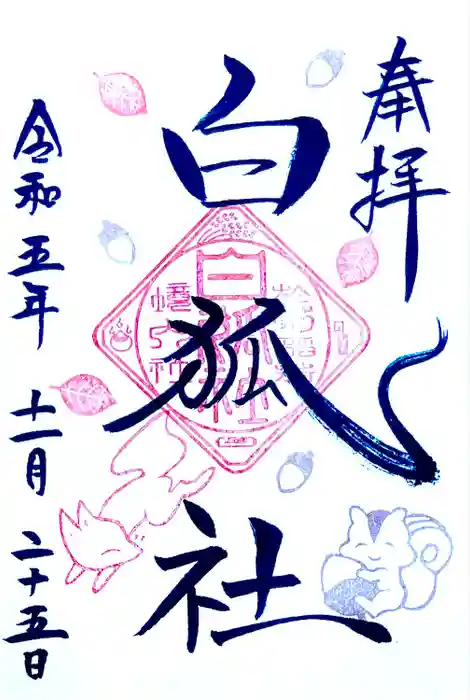 奉拝
白狐社
令和五年 十一月 二十五日
白狐社